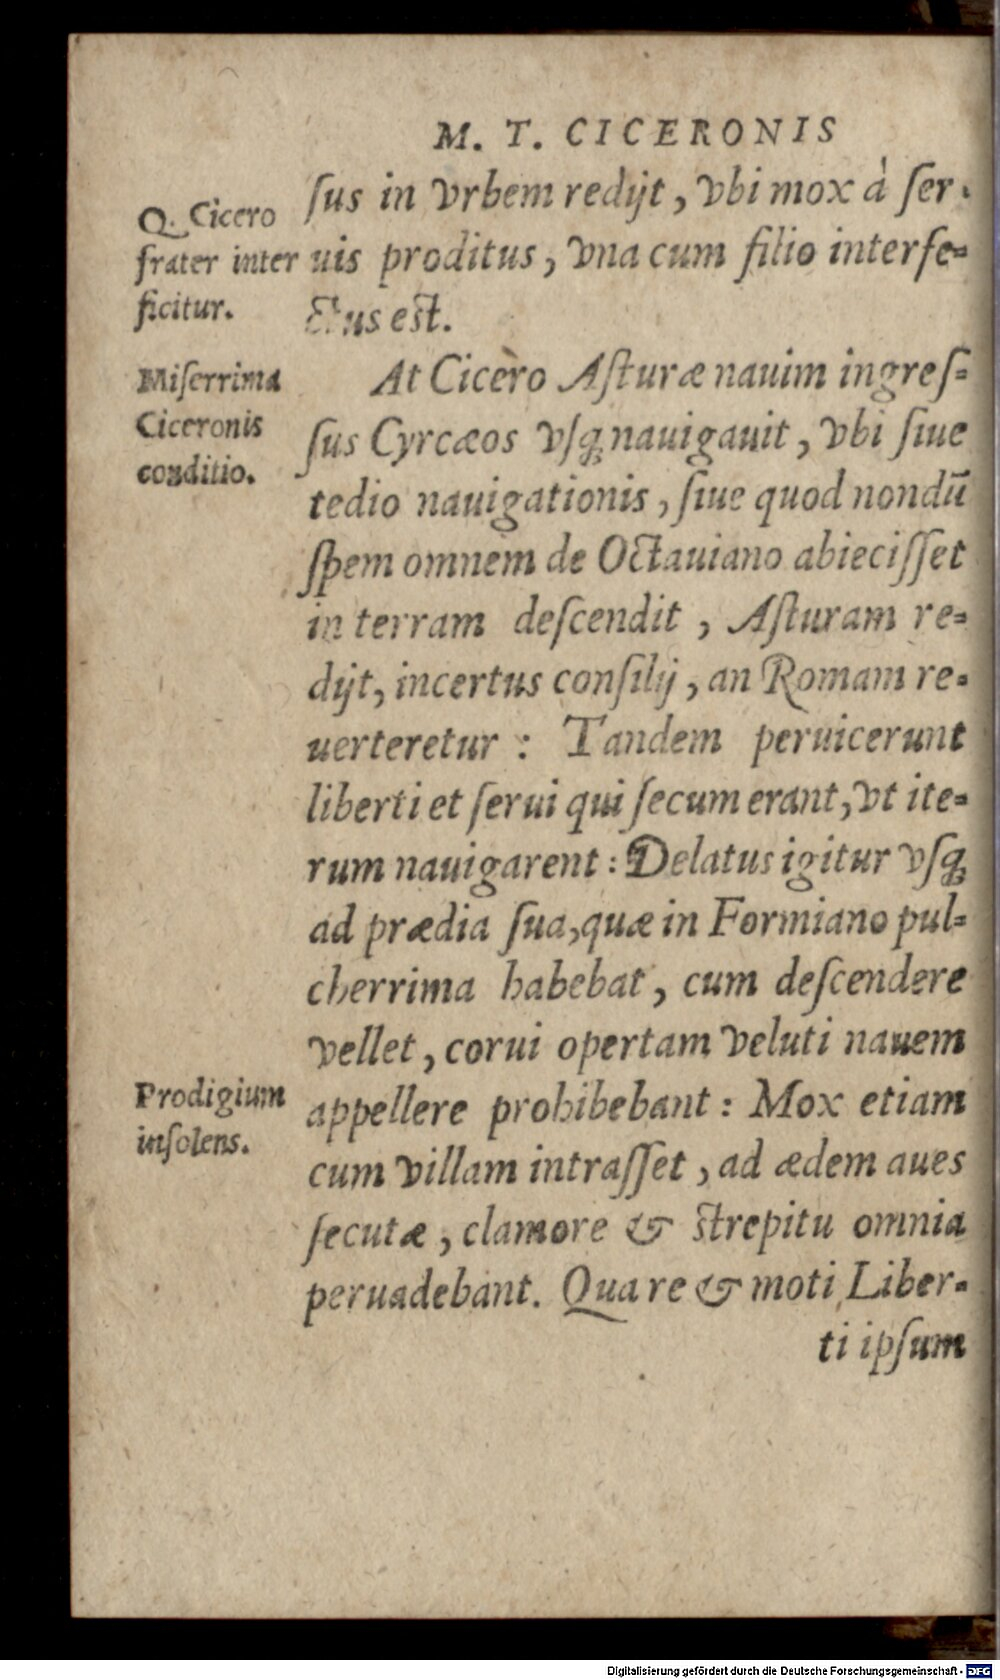 M. T. CICERONIS
Q. Cicero
frater inter
ficitur.
ſus in vrbem redijt, vbi mox à ſer-
uis proditus, vna cum filio interfe-
ctus est.
Miſerrima
Ciceronis
conditio.
At Cicero Aſturæ nauim ingreſ-
ſus Cyrcæos vſq́; nauigauit, vbi ſiue
tedio nauigationis, ſiue quod nondū
ſpem omnem de Octauiano abieciſſet
in terram deſcendit, Aſturam re-
dijt, incertus conſilij, an Romam re-
uerteretur: Tandem peruicerunt
liberti et ſerui qui ſecum erant, vt ite-
rum nauigarent: Delatus igitur vſq́;
ad prædia ſua, quæ in Formiano pul-
cherrima habebat, cum deſcendere
vellet, corui opertam veluti nauem
Prodigium
inſolens.
appellere prohibebant: Mox etiam
cum villam intraſſet, ad ædem aues
ſecutæ, clamore & strepitu omnia
peruadebant. Quare & moti Liber-
ti ipſum
Digitalisierung gefördert durch die Deutsche Forschungsgemeinschaft - DFG